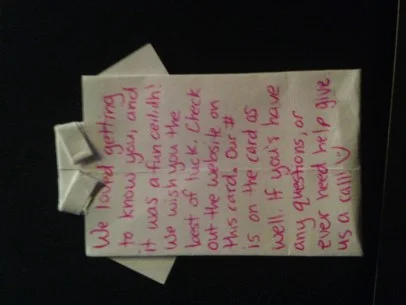 We loved getting
to know you, and
it was a fun ceilidh!
We wish you the
best of luck. Check
out the website on
this card. Our #
is on the card as
well. If you's have
any questions, or
ever need help give
us a call!